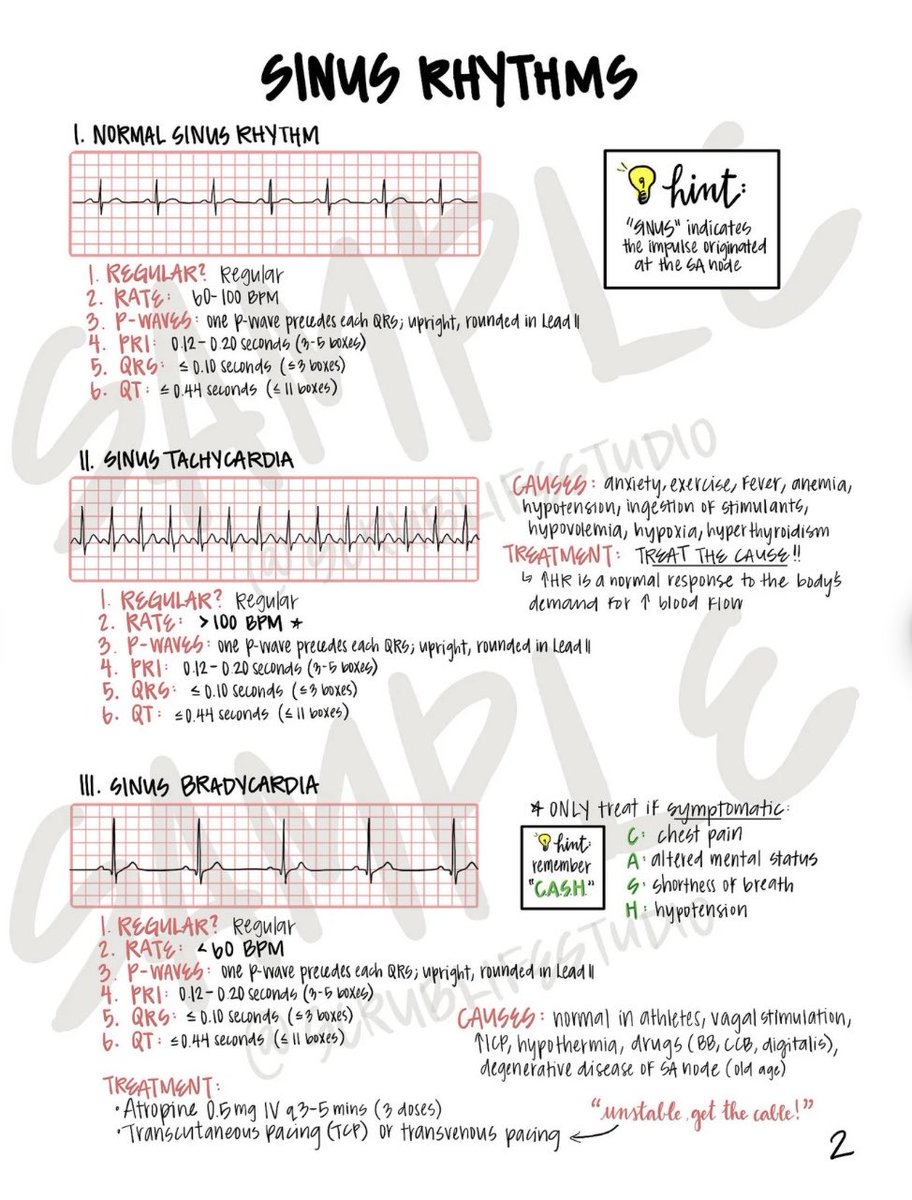 SINUS RHYTHMS
I. NORMAL SINUS RHYTHM
hint:
"SINUS" indicates
the impulse originated
at the SA node
1. REGULAR? Regular
2. RATE: 60-100 BPM
3. P-WAVES: one P-wave precedes each QRS; upright, rounded in Lead II
4. PRI: 0.12-0.20 seconds (3-5 boxes)
5. QRS: ≤ 0.10 seconds (≤3 boxes)
6. QT: ≤ 0.44 seconds (≤ 11 boxes)
II. SINUS TACHYCARDIA
CAUSES: anxiety, exercise, fever, anemia,
hypotension, ingestion of stimulants,
hypovolemia, hypoxia, hyperthyroidism
TREATMENT: TREAT THE CAUSE!!
↳ ↑HR is a normal response to the body's
demand for ↑ blood flow
1. REGULAR? Regular
2. RATE: >100 BPM *
3. P-WAVES: one P-wave precedes each QRS; upright, rounded in Lead II
4. PRI: 0.12-0.20 seconds (3-5 boxes)
5. QRS: ≤ 0.10 seconds (≤3 boxes)
6. QT: ≤0.44 seconds (≤ 11 boxes)
III. SINUS BRADYCARDIA
* ONLY treat if symptomatic:
hint:
remember
"C.A.S.H."
C: chest pain
A: altered mental status
S: shortness of breath
H: hypotension
1. REGULAR? Regular
2. RATE: <60 BPM
3. P-WAVES: one P-wave precedes each QRS; upright, rounded in Lead II
4. PRI: 0.12-0.20 seconds (3-5 boxes)
5. QRS: ≤ 0.10 seconds (≤3 boxes)
6. QT: ≤0.44 seconds (≤ 11 boxes)
CAUSES: normal in athletes, vagal stimulation,
↑ICP, hypothermia, drugs (BB, CCB, digitalis),
degenerative disease of SA node (old age)
TREATMENT:
• Atropine 0.5mg IV q3-5 mins (3 doses)
• Transcutaneous pacing (TCP) or transvenous pacing ←
"unstable, get the cable!"
2
SAMPLE
@SCRUBLIFESSTUDIO
SAMPLE
@SCRUBLIFESSTUDIO